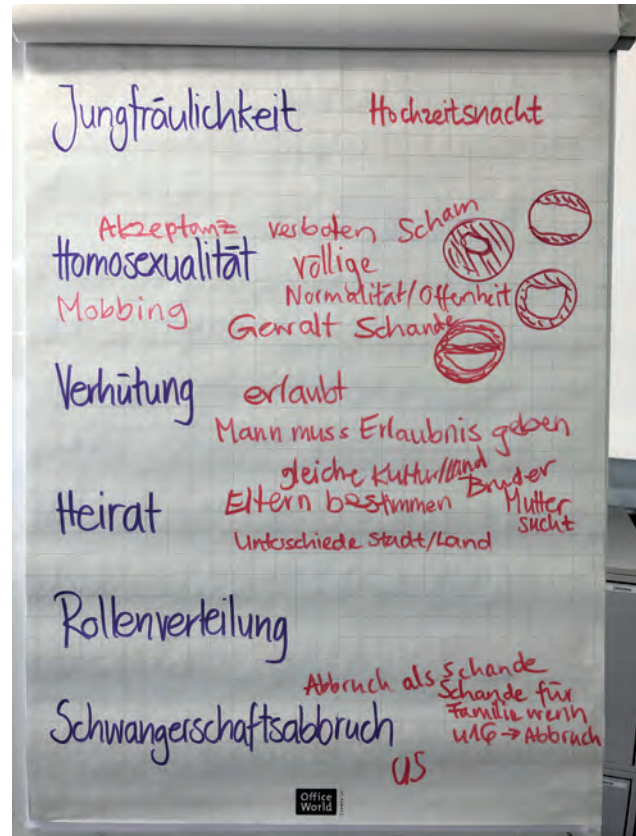 Jungfräulichkeit Hochzeitsnacht
Akzeptanz verboten Scham
Homosexualität völlige
Normalität/Offenheit
Mobbing
Gewalt Schande
Verhütung erlaubt
Mann muss Erlaubnis geben
gleiche Kultur/Land
Bruder
Heirat Eltern bestimmen Mutter
sucht
Unterschiede Stadt/Land
Rollenverteilung
Abbruch als Schande
Schande für
Familie wenn
Schwangerschaftsabbruch u16 → Abbruch
US
Office
World